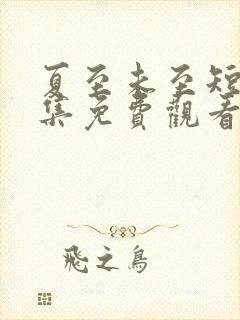 夏至未至短
集免費觀看
飛之鳥